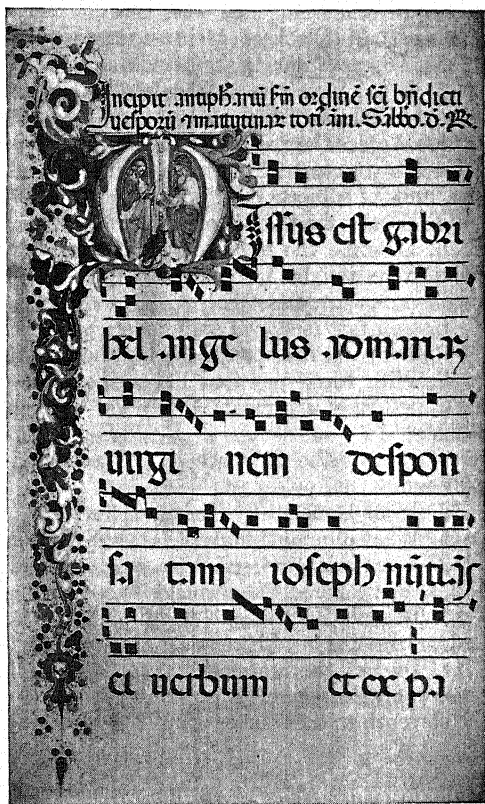 Incipit antiphariū scdm ordinē sci bndicti
uesporū ⁊ matutinar toti āni. Sabbo. d. R.
Missus est gabri
hel ange lus ad mariaz
uirgi nem despon
sa tam ioseph nūtiās
ei uerbum et ex pa